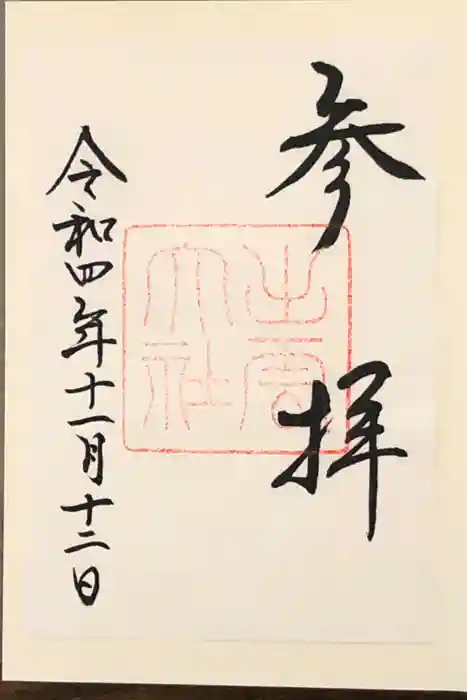 参拝
出雲
大社
令和四年十一月十二日